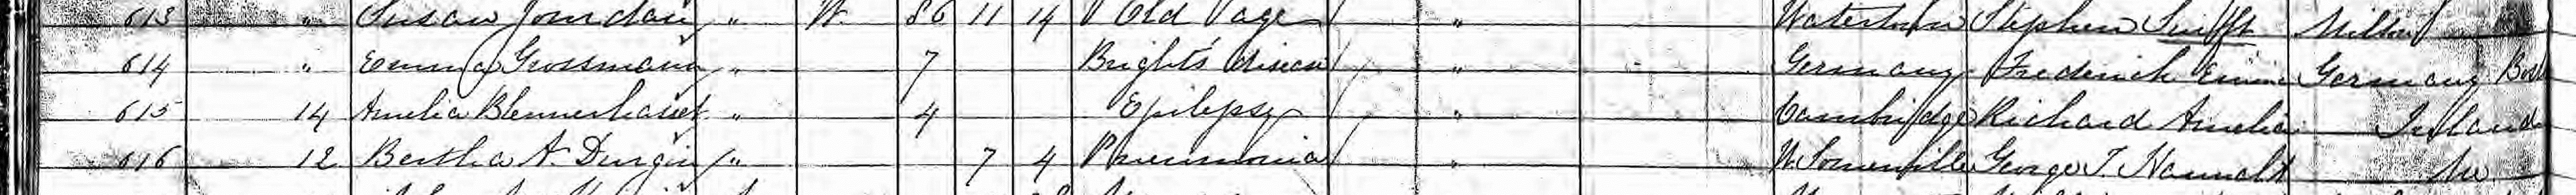 613 " Susan Jourdan " W. 86 11 14 Old age " Watertown Stephen Milton
614 " Emma Grossmann " 7 Bright's disease " Germany Frederick Emma Germany Bost
615 14 Amelia Blennerhasset " 4 Epilepsy " Cambridge Richard Amelia Ireland
616 12 Bertha A. Durgin " 7 4 Pneumonia " W. Somerville George T. Hannah Me